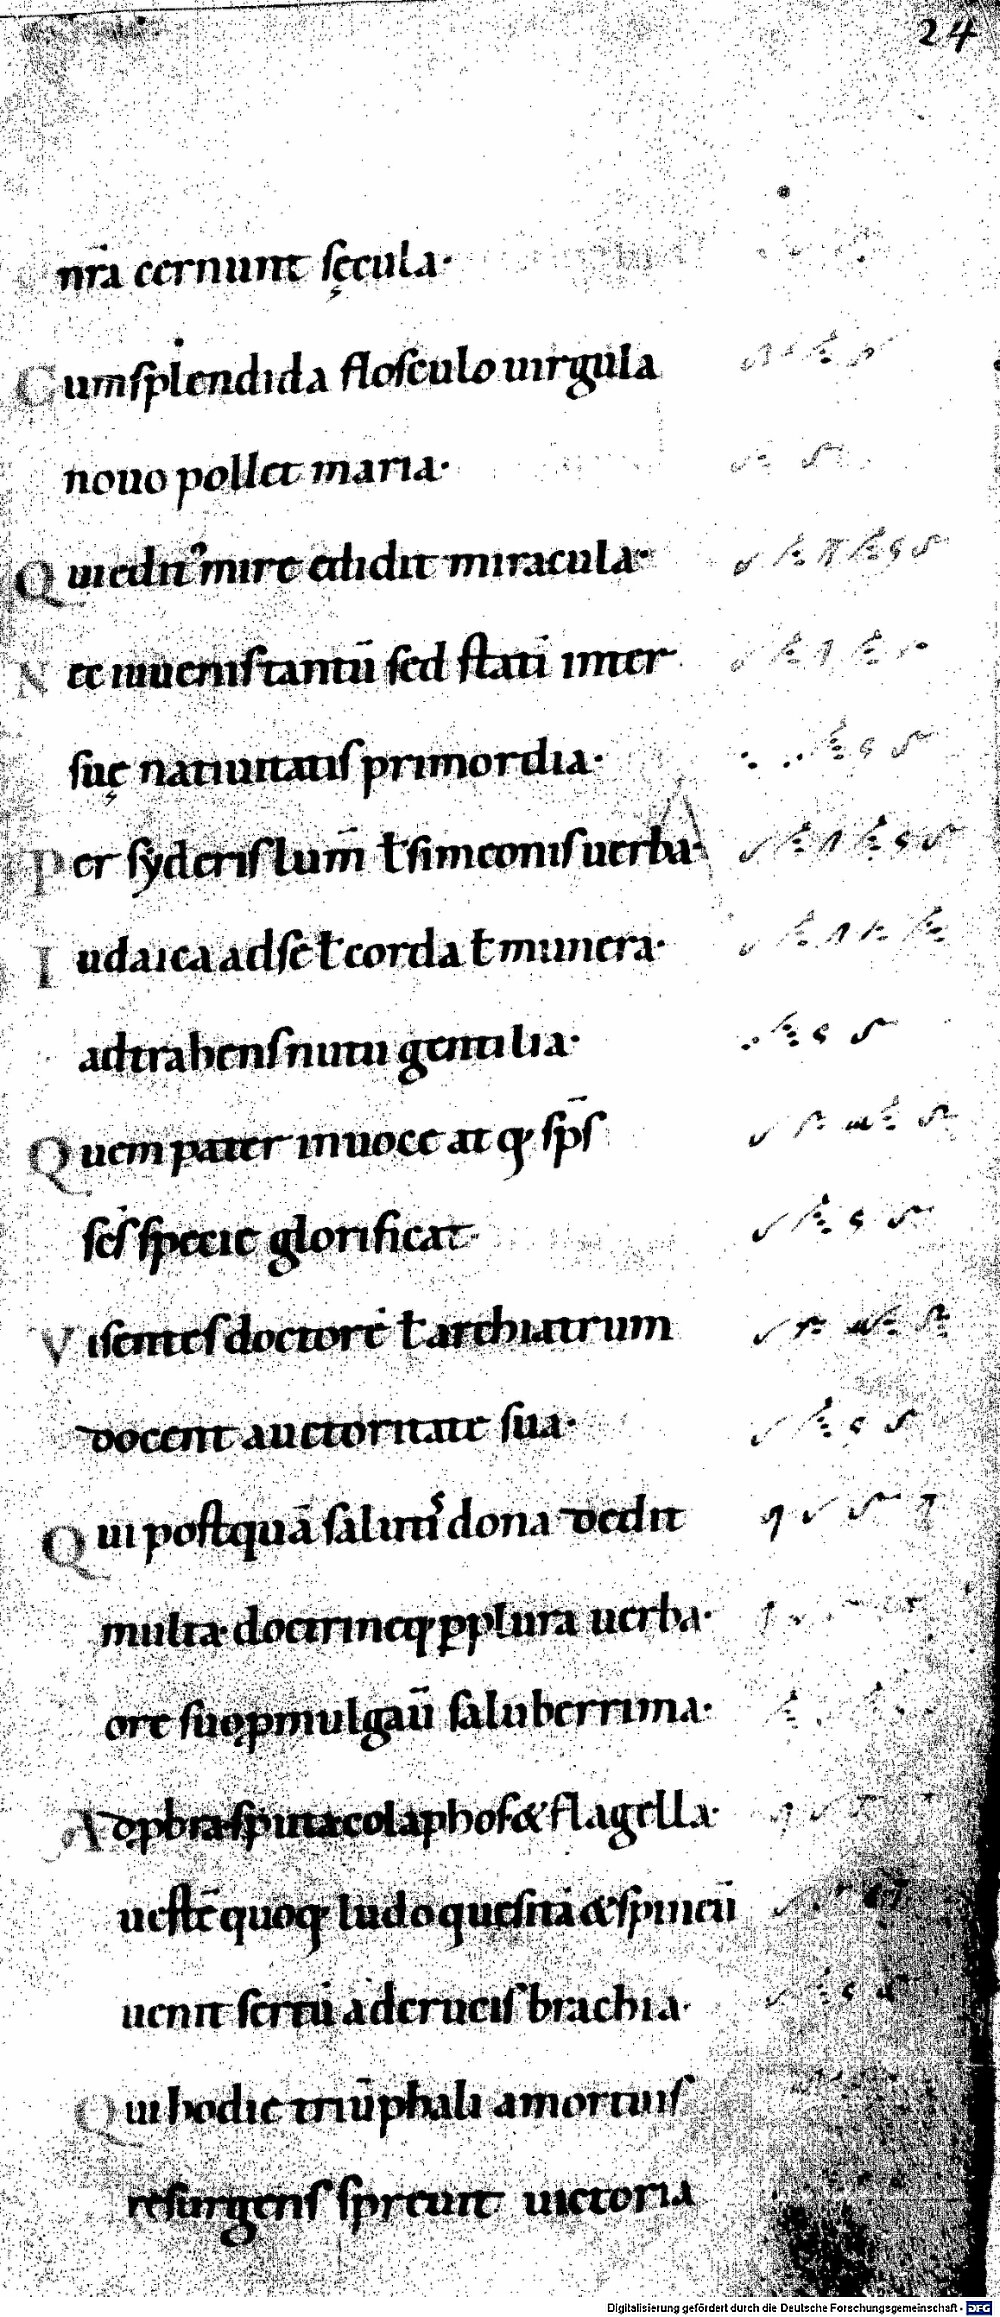 24
nr̄a cernunt sęcula·
Cum splendida flosculo uirgula
nouo pollet maria·
Qui edit᷒ mire edidit miracula·
Nec iuuenis tantū sed statī inter
suę natiuitatis primordia·
Per syderis lum̄ ł simeonis uerba·
Iudaica ad se ł corda ł munera·
adtrahens nutu gentilia·
Quem pater in uoce atq; sp̄s
sc̄s specie glorificat·
Visentes doctorē ł archiatrum
docent auctoritate sua·
Qui postquā salutis dona dedit
multa· doctrineq; ꝑplura uerba·
ore suo ꝓmulgaū saluberrima·
Ad ꝓbra· sputa· colaphos & flagella·
uestē quoq; ludo quesitā & spineū
uenit sertū ad crucis brachia·
Qui hodie triūphali a mortuis
resurgens spreuit uictoria
Digitalisierung gefördert durch die Deutsche Forschungsgemeinschaft - DFG